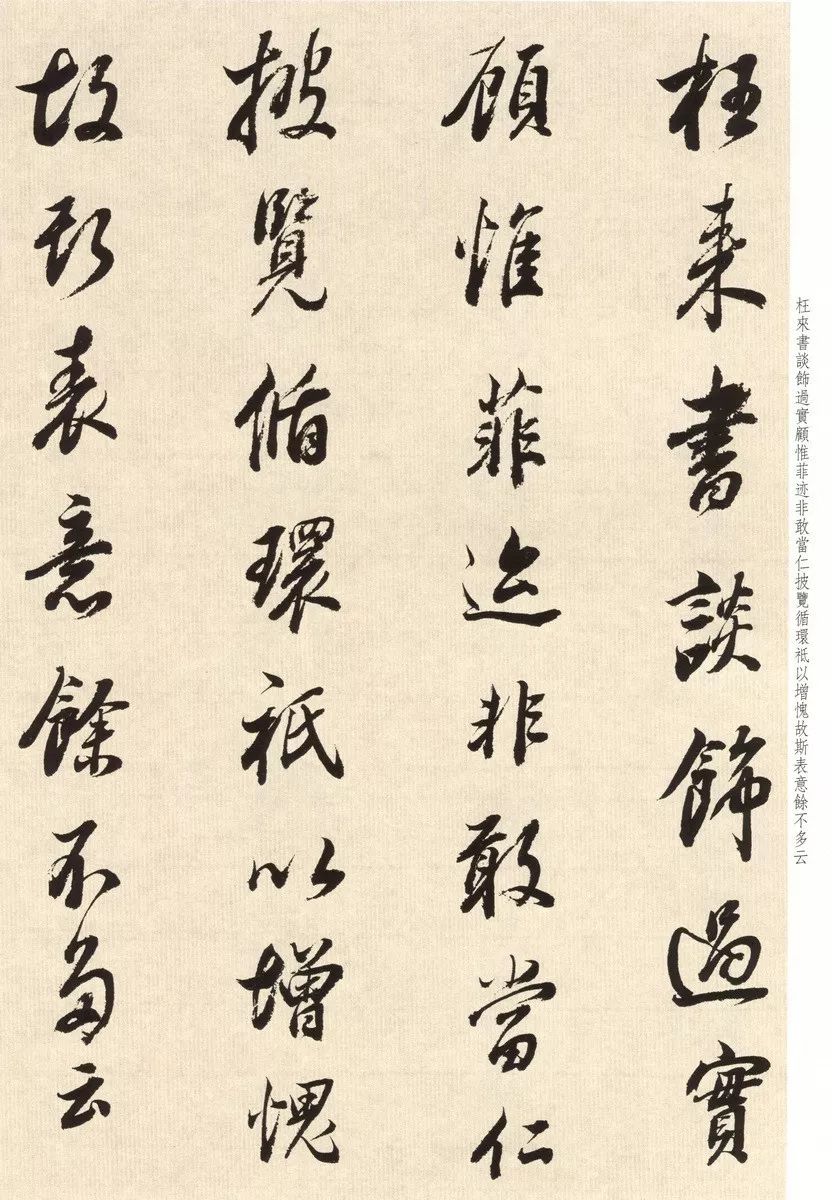 枉来書談飾過實
顧惟菲迹非敢當仁
披覽循環祗以增愧
故斯表意餘不多云
枉來書談飾過實顧惟菲迹非敢當仁披覽循環祗以增愧故斯表意餘不多云